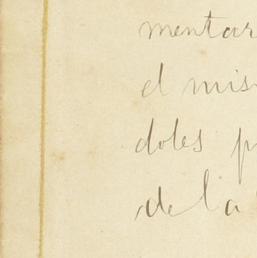 mentar
el mis
doles p
de la